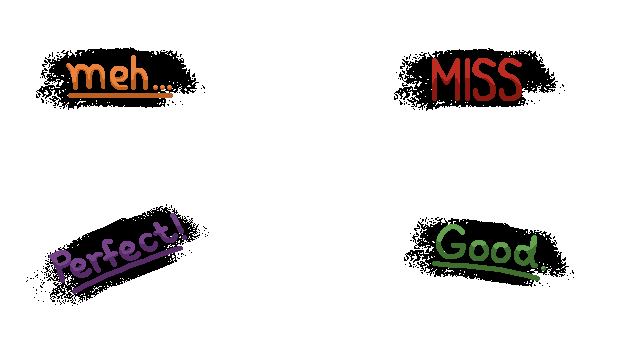 meh...
MISS
Perfect!
Good